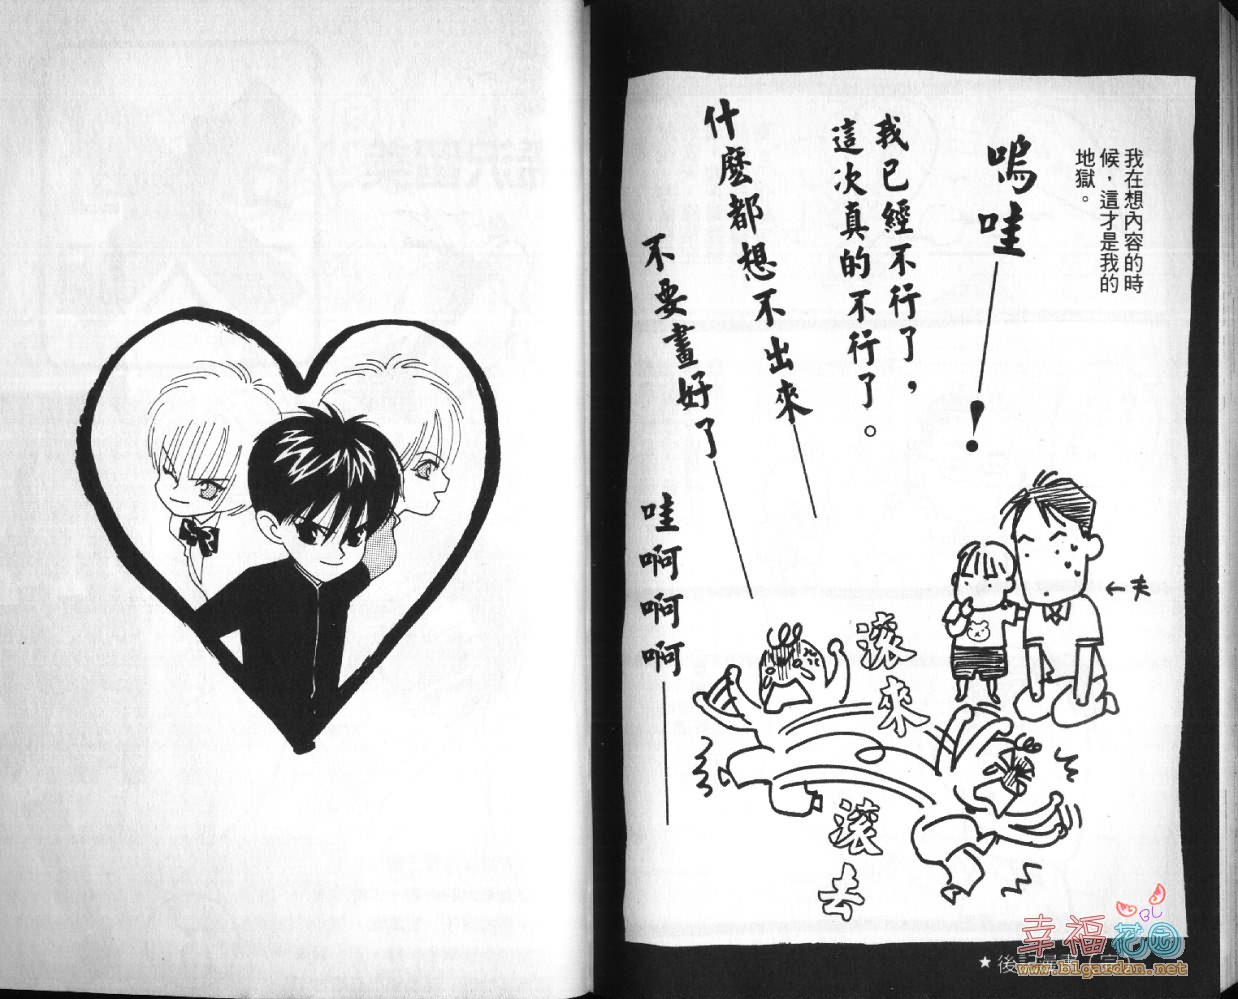 我在想內容的時
候，這才是我的
地獄。
嗚哇——！
我已經不行了，
這次真的不行了。
什麼都想不出來——
不要畫好了——
哇啊啊啊——
←夫
滾來
滾去
BL
幸福花园
www.blgardan.net